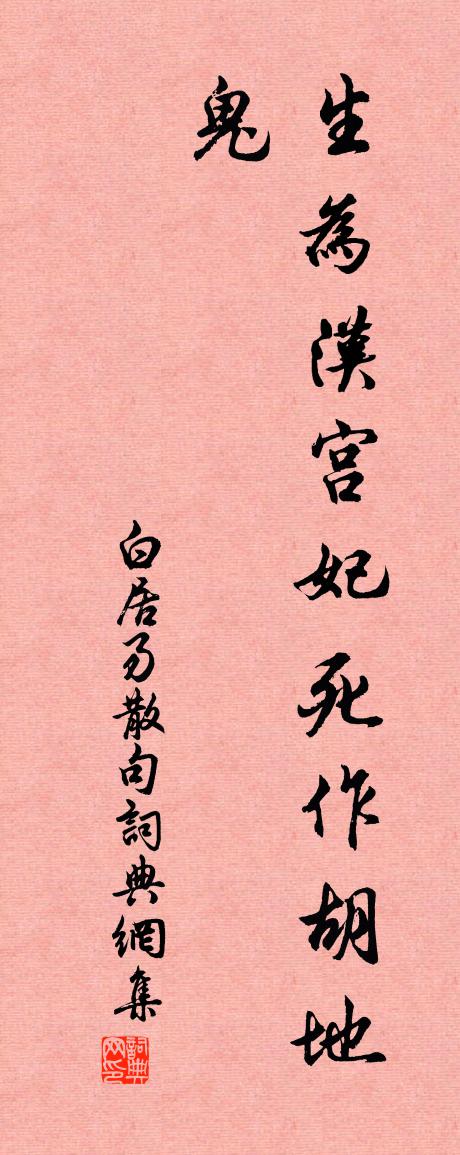 生為漢宮妃死作胡地
鬼
白居易散句詞典網集
詞典
网印